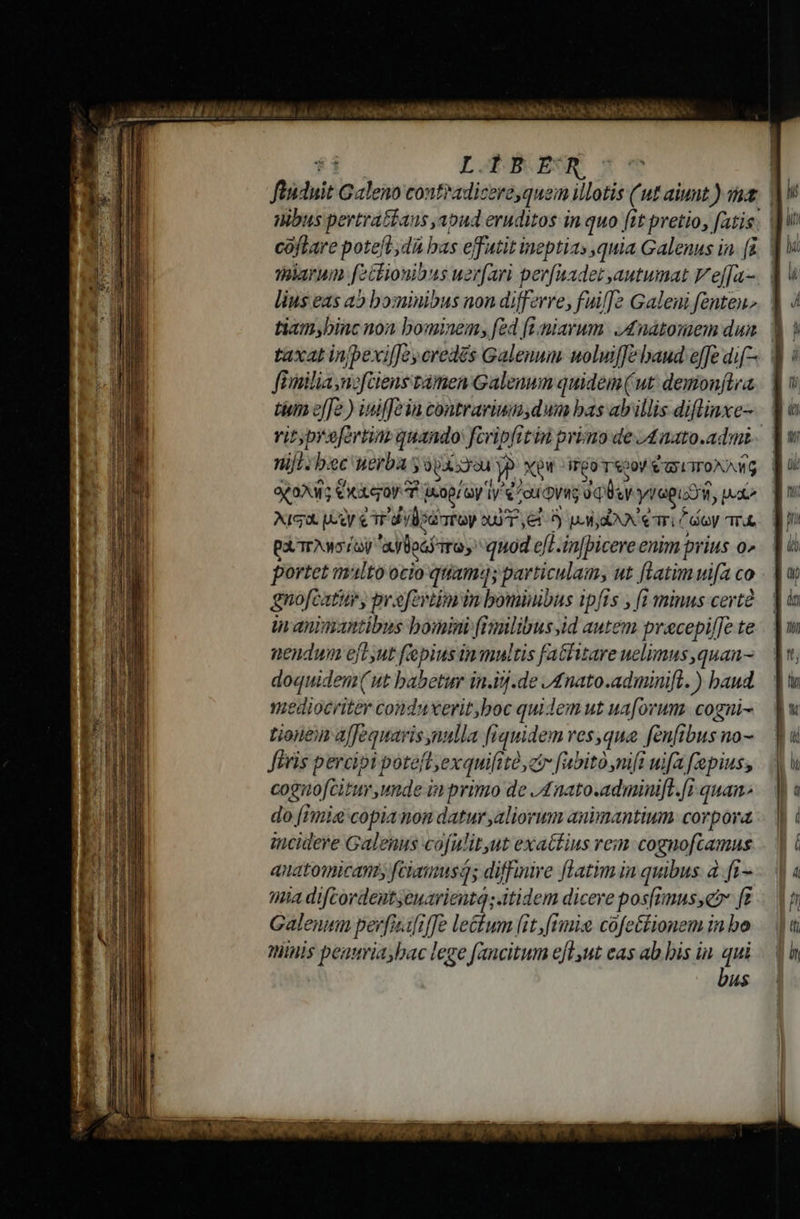 LIBER
ſtuduit Galeno contradicere, quem illotis (ut aiunt) ma
nibus pertractans, apud eruditos in quo ſit pretio, ſatis
cōſtare poteſt, dū has effutit ineptias, quia Galenus in ſi
miarum ſectionibus uerſari perſuadet, autumat Veſſa-
lius eas ab hominibus non differre, fuiſſe Galeni ſenten-
tiam, hinc non hominem, ſed ſimiarum Anatomem dun
taxat inſpexiſſe, credēs Galenum uoluiſſe haud eſſe diſ-
ſimilia, neſciens tamen Galenum quidem (ut demonſtra
tum eſſe) iuiſſe in contrarium, dum has ab illis diſtinxe-
rit, præſertim quando ſcripſit in primo de Anato.admi.
niſt. hæc uerba
quod eſt. inſpicere enim prius o-
portet multo ocio quamq; particulam, ut ſtatim uiſa co
gnoſcatur, præſertim in hominibus ipſis, ſi minus certè
in animantibus homini ſimilibus, id autem præcepiſſe te
nendum eſt, ut ſæpius in multis factitare uelimus, quan-
doquidem (ut habetur in.ij.de Anato.adminiſt.) haud
mediocriter conduxerit, hoc quidem ut uaſorum cogni-
tionem aſſequaris, nulla ſiquidem res, quæ ſenſibus no-
ſtris percipi poteſt, exquiſitè, & ſubitò, niſi uiſa ſæpius,
cognoſcitur, unde in primo de Anato.adminiſt. ſi quan-
do ſimiæ copia non datur, aliorum animantium corpora
incidere Galenus cōſulit, ut exactius rem cognoſcamus
anatomicam, ſciamusq́; diffinire ſtatim in quibus à ſi-
mia diſcordent, euarientq́;, itidem dicere poſſimus, & ſi
Galenum perſuaſiſſe lectum ſit, ſimiæ cōſectionem in ho
minis penuria, hac lege ſancitum eſt, ut eas ab his in qui
bus